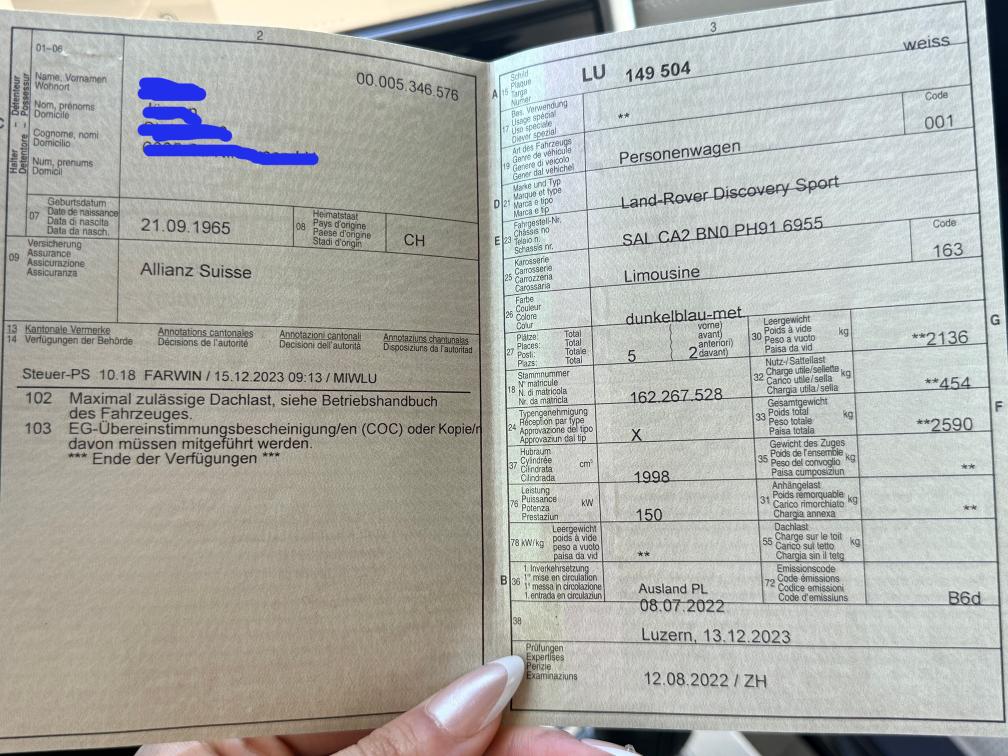 2
01-06
Halter – Détenteur
Detentore – Possessur
Name, Vornamen
Wohnort
Nom, prénoms
Domicile
Cognome, nomi
Domicilio
Num, prenums
Domicil
00.005.346.576
07
Geburtsdatum
Date de naissance
Data di nascita
Data da nasch.
21.09.1965
08
Heimatstaat
Pays d'origine
Paese d'origine
Stadi d'origin
CH
09
Versicherung
Assurance
Assicurazione
Assicuranza
Allianz Suisse
13
14
Kantonale Vermerke
Verfügungen der Behörde
Annotations cantonales
Décisions de l'autorité
Annotazioni cantonali
Decisioni dell'autorità
Annotaziuns chantunalas
Disposiziuns da l'autoritad
Steuer-PS 10.18 FARWIN / 15.12.2023 09:13 / MIWLU
102 Maximal zulässige Dachlast, siehe Betriebshandbuch
des Fahrzeuges.
103 EG-Übereinstimmungsbescheinigung/en (COC) oder Kopie/n
davon müssen mitgeführt werden.
*** Ende der Verfügungen ***
3
A 15
Schild
Plaque
Targa
Numer
LU 149 504
weiss
17
Bes. Verwendung
Usage spécial
Uso speciale
Diever spezial
**
19
Art des Fahrzeugs
Genre de véhicule
Genere di veicolo
Gener dal vehichel
Personenwagen
Code
001
D 21
Marke und Typ
Marque et type
Marca e tipo
Marca e tip
Land-Rover Discovery Sport
E 23
Fahrgestell-Nr.
Châssis no
Telaio n.
Schassis nr.
SAL CA2 BN0 PH91 6955
25
Karosserie
Carrosserie
Carrozzeria
Carossaria
Limousine
Code
163
26
Farbe
Couleur
Colore
Colur
dunkelblau-met
27
Plätze: Total
Places: Total
Posti: Totale
Plazs: Total
5
2
vorne)
avant)
anteriori)
davant)
G
30
Leergewicht
Poids à vide
Peso a vuoto
Paisa da vid
kg
**2136
18
Stammnummer
N° matricule
N. di matricola
Nr. da matricla
162.267.528
32
Nutz-/Sattellast
Charge utile/sellette
Carico utile/sella
Chargia utila/sella
kg
**454
24
Typengenehmigung
Réception par type
Approvazione del tipo
Approvaziun dal tip
X
F
33
Gesamtgewicht
Poids total
Peso totale
Paisa totala
kg
**2590
37
Hubraum
Cylindrée
Cilindrata
Cilindrada
cm³
1998
35
Gewicht des Zuges
Poids de l'ensemble
Peso del convoglio
Paisa cumposiziun
kg
**
76
Leistung
Puissance
Potenza
Prestaziun
kW
150
31
Anhängelast
Poids remorquable
Carico rimorchiato
Chargia annexa
kg
**
78 kW/kg
Leergewicht
poids à vide
peso a vuoto
paisa da vid
**
55
Dachlast
Charge sur le toit
Carico sul tetto
Chargia sin il tetg
kg
B 36
1. Inverkehrsetzung
1re mise en circulation
1a messa in circolazione
1. entrada en circulaziun
Ausland PL
08.07.2022
72
Emissionscode
Code émissions
Codice emissioni
Code d'emissiuns
B6d
38
Luzern, 13.12.2023
Prüfungen
Expertises
Perizie
Examinaziuns
12.08.2022 / ZH